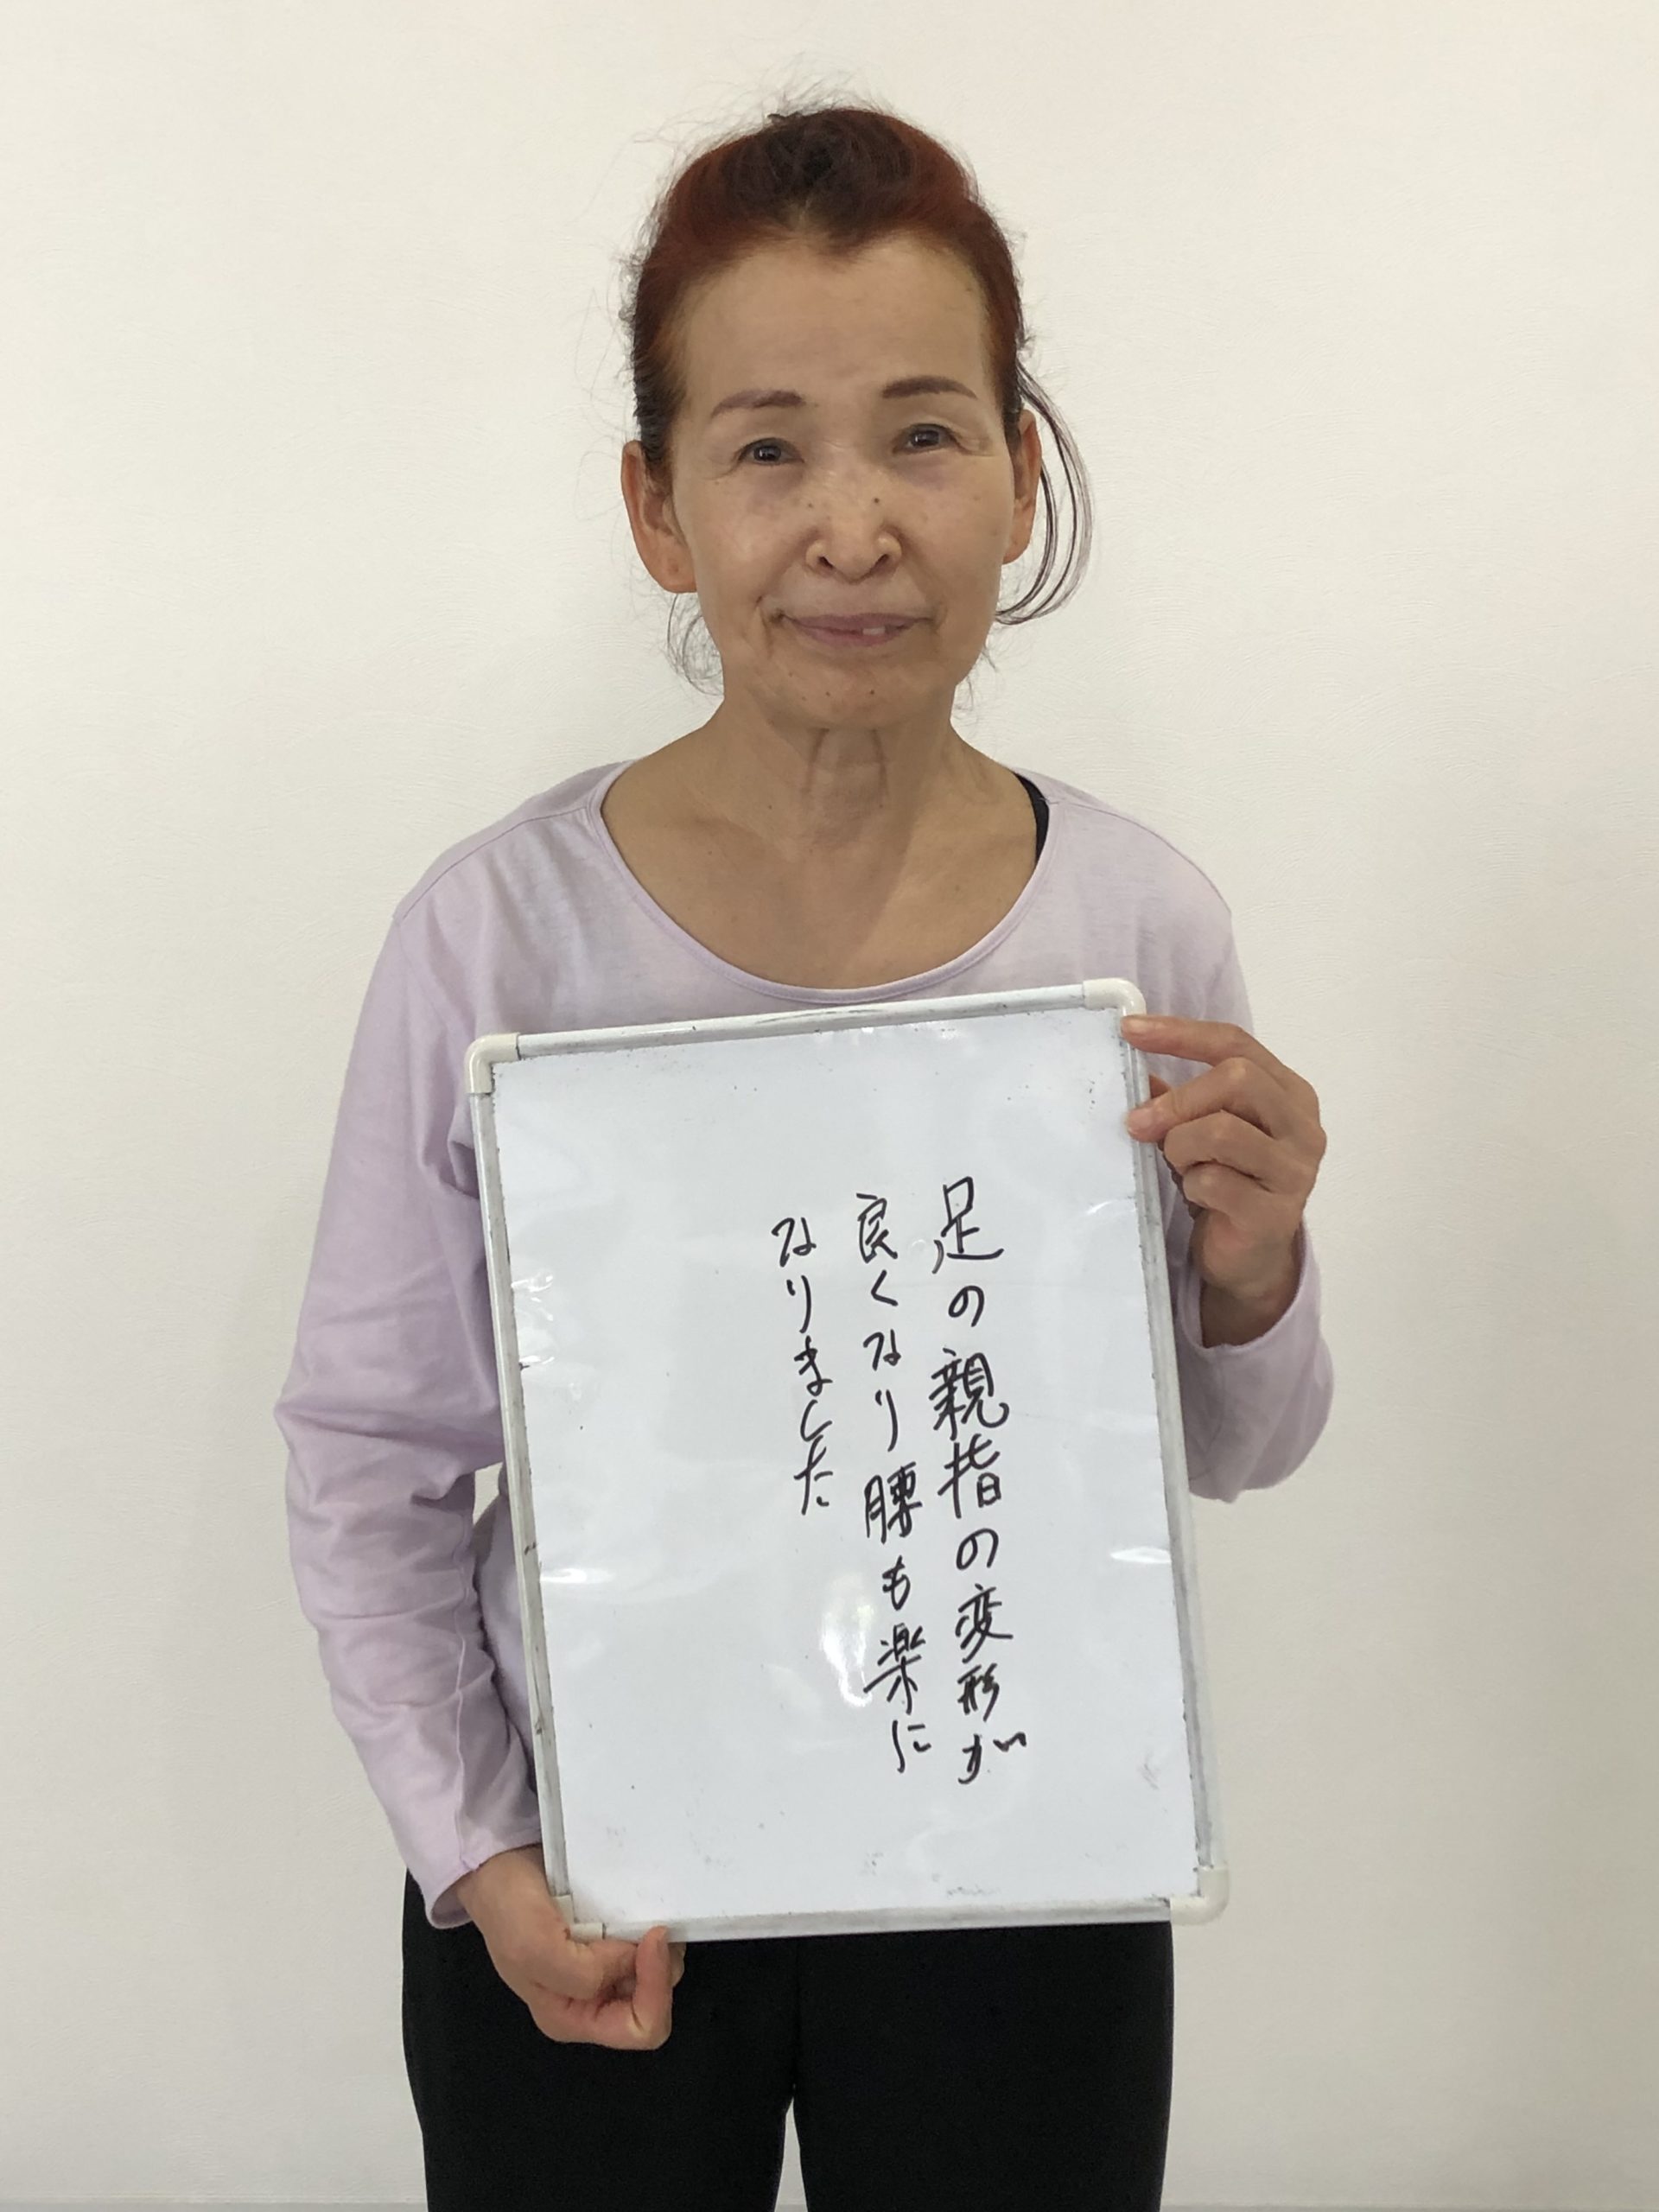 足の親指の変形が
良くなり腰も楽に
なりました